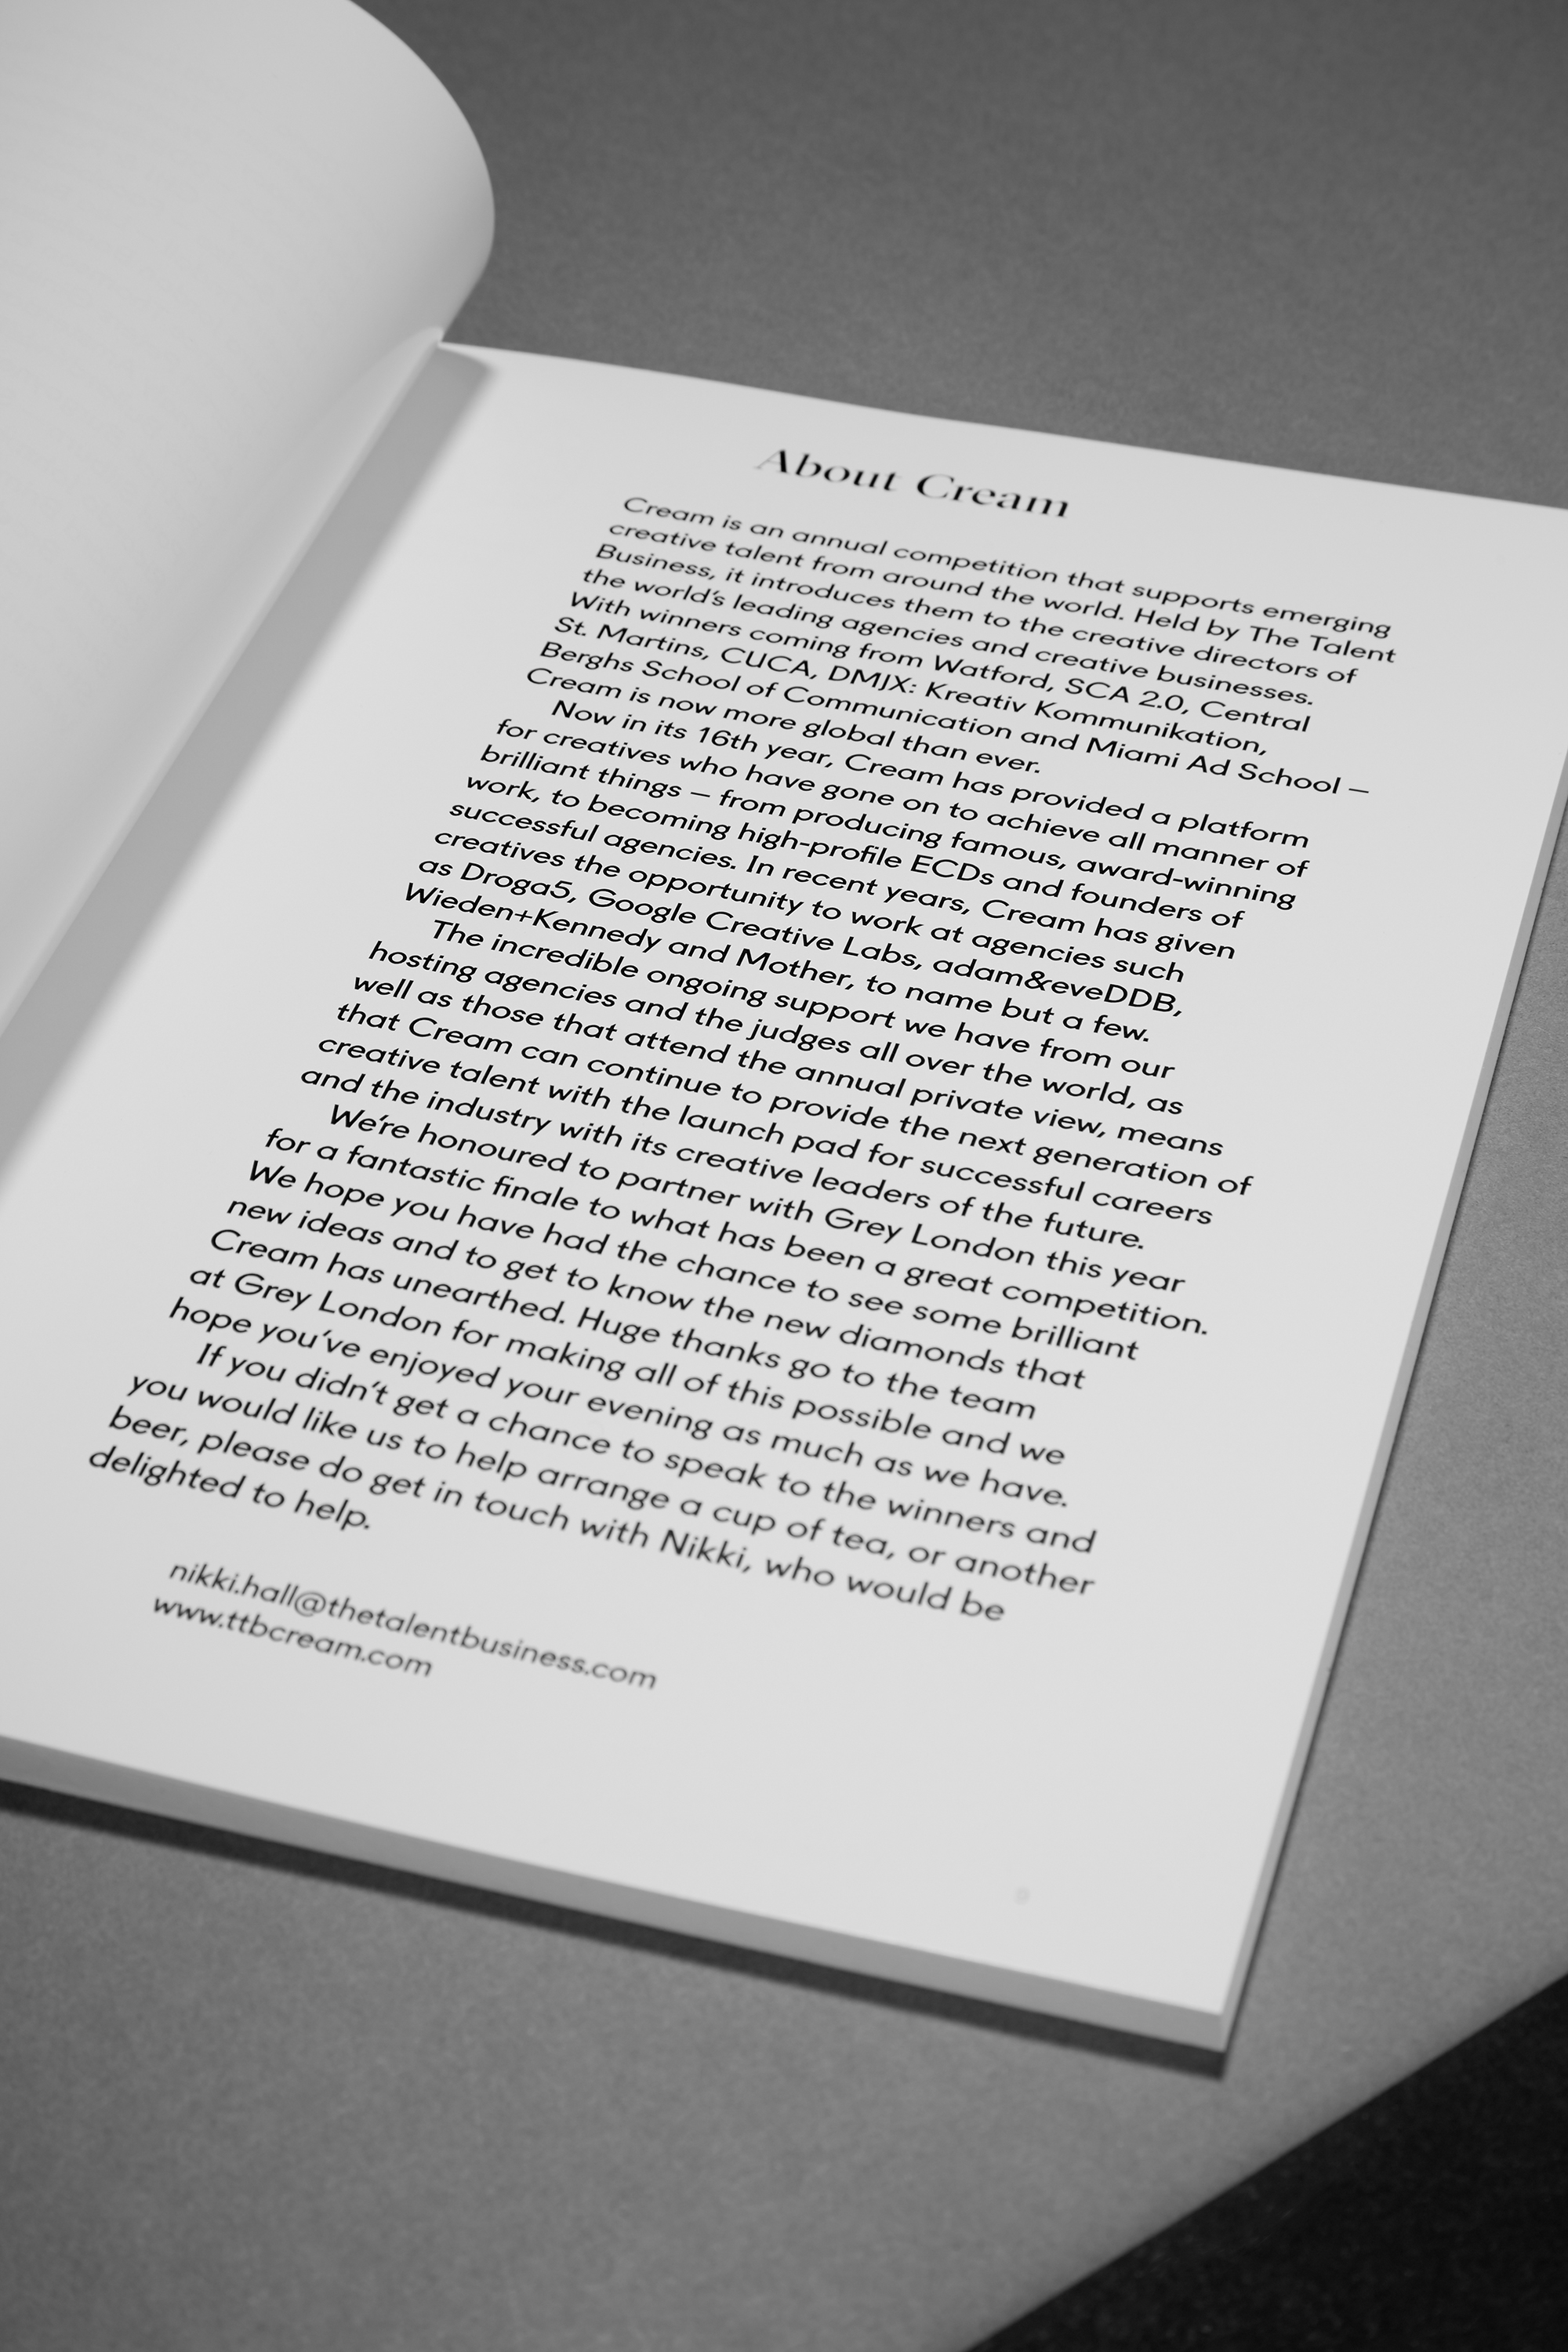 About Cream
Cream is an annual competition that supports emerging
creative talent from around the world. Held by The Talent
Business, it introduces them to the creative directors of
the world's leading agencies and creative businesses.
With winners coming from Watford, SCA 2.0, Central
St. Martins, CUCA, DMJX: Kreativ Kommunikation,
Berghs School of Communication and Miami Ad School –
Cream is now more global than ever.
Now in its 16th year, Cream has provided a platform
for creatives who have gone on to achieve all manner of
brilliant things – from producing famous, award-winning
work, to becoming high-profile ECDs and founders of
successful agencies. In recent years, Cream has given
creatives the opportunity to work at agencies such
as Droga5, Google Creative Labs, adam&eveDDB,
Wieden+Kennedy and Mother, to name but a few.
The incredible ongoing support we have from our
hosting agencies and the judges all over the world, as
well as those that attend the annual private view, means
that Cream can continue to provide the next generation of
creative talent with the launch pad for successful careers
and the industry with its creative leaders of the future.
We're honoured to partner with Grey London this year
for a fantastic finale to what has been a great competition.
We hope you have had the chance to see some brilliant
new ideas and to get to know the new diamonds that
Cream has unearthed. Huge thanks go to the team
at Grey London for making all of this possible and we
hope you've enjoyed your evening as much as we have.
If you didn't get a chance to speak to the winners and
you would like us to help arrange a cup of tea, or another
beer, please do get in touch with Nikki, who would be
delighted to help.
nikki.hall@thetalentbusiness.com
www.ttbcream.com